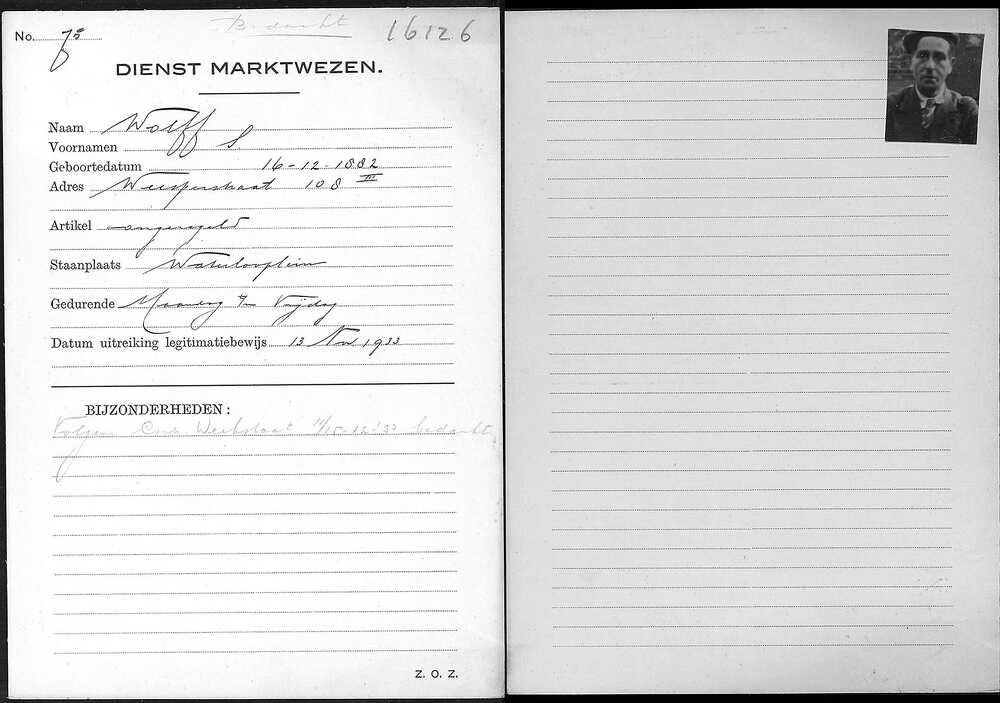 No. 75
Bedacht
16126
DIENST MARKTWEZEN.
Naam Wolff
Voornamen S.
Geboortedatum 16-12-1882
Adres Weesperstraat 108 III
Artikel ongeregeld
Staanplaats Waterlooplein
Gedurende Maandag t/m Vrijdag
Datum uitreiking legitimatiebewijs 13 Nov. 1933
BIJZONDERHEDEN:
Volgens 11/15-12-'33 bedacht
Z. O. Z.